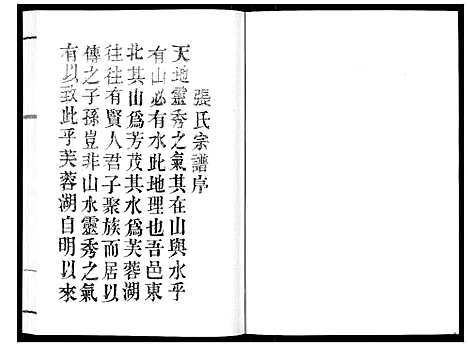 張氏宗譜序
天地靈秀之氣其在山與水乎
有山必有水此地理也吾邑東
北其山為芳茂其水為芙蓉湖
往往有賢人君子聚族而居以
傳之子孫豈非山水靈秀之氣
有以致此乎芙蓉湖自明以來